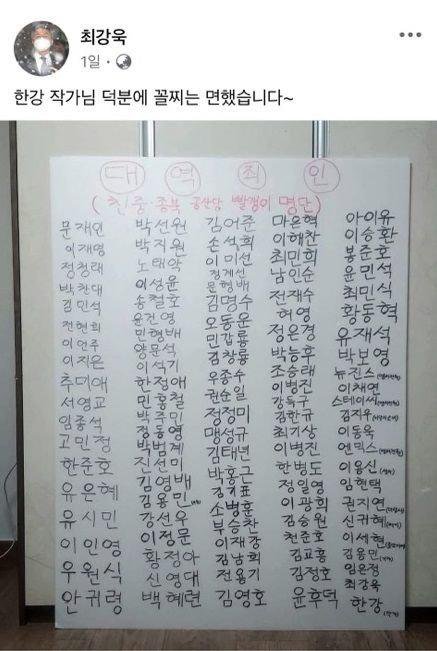 최강욱
1일
한강 작가님 덕분에 꼴찌는 면했습니다~
대 역 죄 인
(친중·종북 공산당 빨갱이 명단)
문재인
이재명
정청래
박찬대
김민석
전현희
이언주
이지은
추미애
서영교
임종석
고민정
한준호
유은혜
유시민
이인영
우원식
안귀령
박선원
박지원
노태악
이성윤
송철호
윤건영
민형배
양문석
이석기
한정애
민홍철
박주민
정동영
박범계
진선미
김영배
김용민
강선우
이정문
황정아
신영대
백혜련
김어준
손석희
이미선
정계선
문형배
김명수
오동운
민갑룡
김창룡
우종수
권순일
정정미
맹성규
김태년
박홍근
김기표
소병훈
부승찬
이재강
김남희
전용기
김영호
마은혁
이해찬
최민희
남인순
전재수
허영
정은경
박능후
조승래
이병진
강득구
김한규
최기상
이병진
한병도
정일영
이광희
김승원
천준호
김교흥
김정호
윤후덕
아이유
이승환
봉준호
윤민석
최민식
황동혁
유재석
박보영
뉴진스
이채연
스테이씨
김지우
이동욱
엔믹스
이용신
임현택
권지연
신규혜
이세현
김용민
임은정
최강욱
한강(작가)